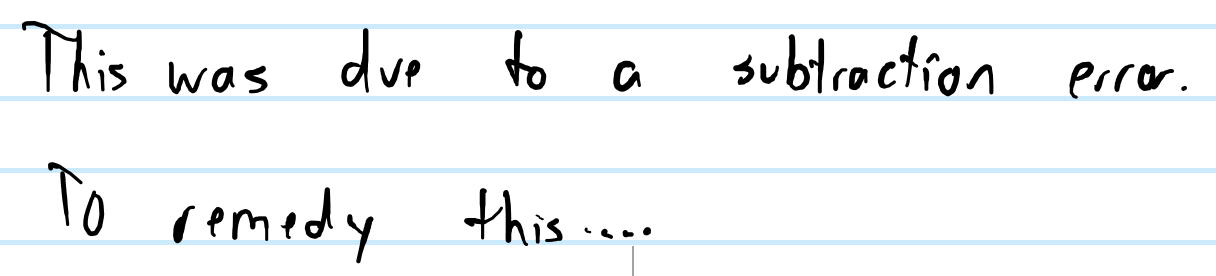 This was due to a subtraction error.
To remedy this....